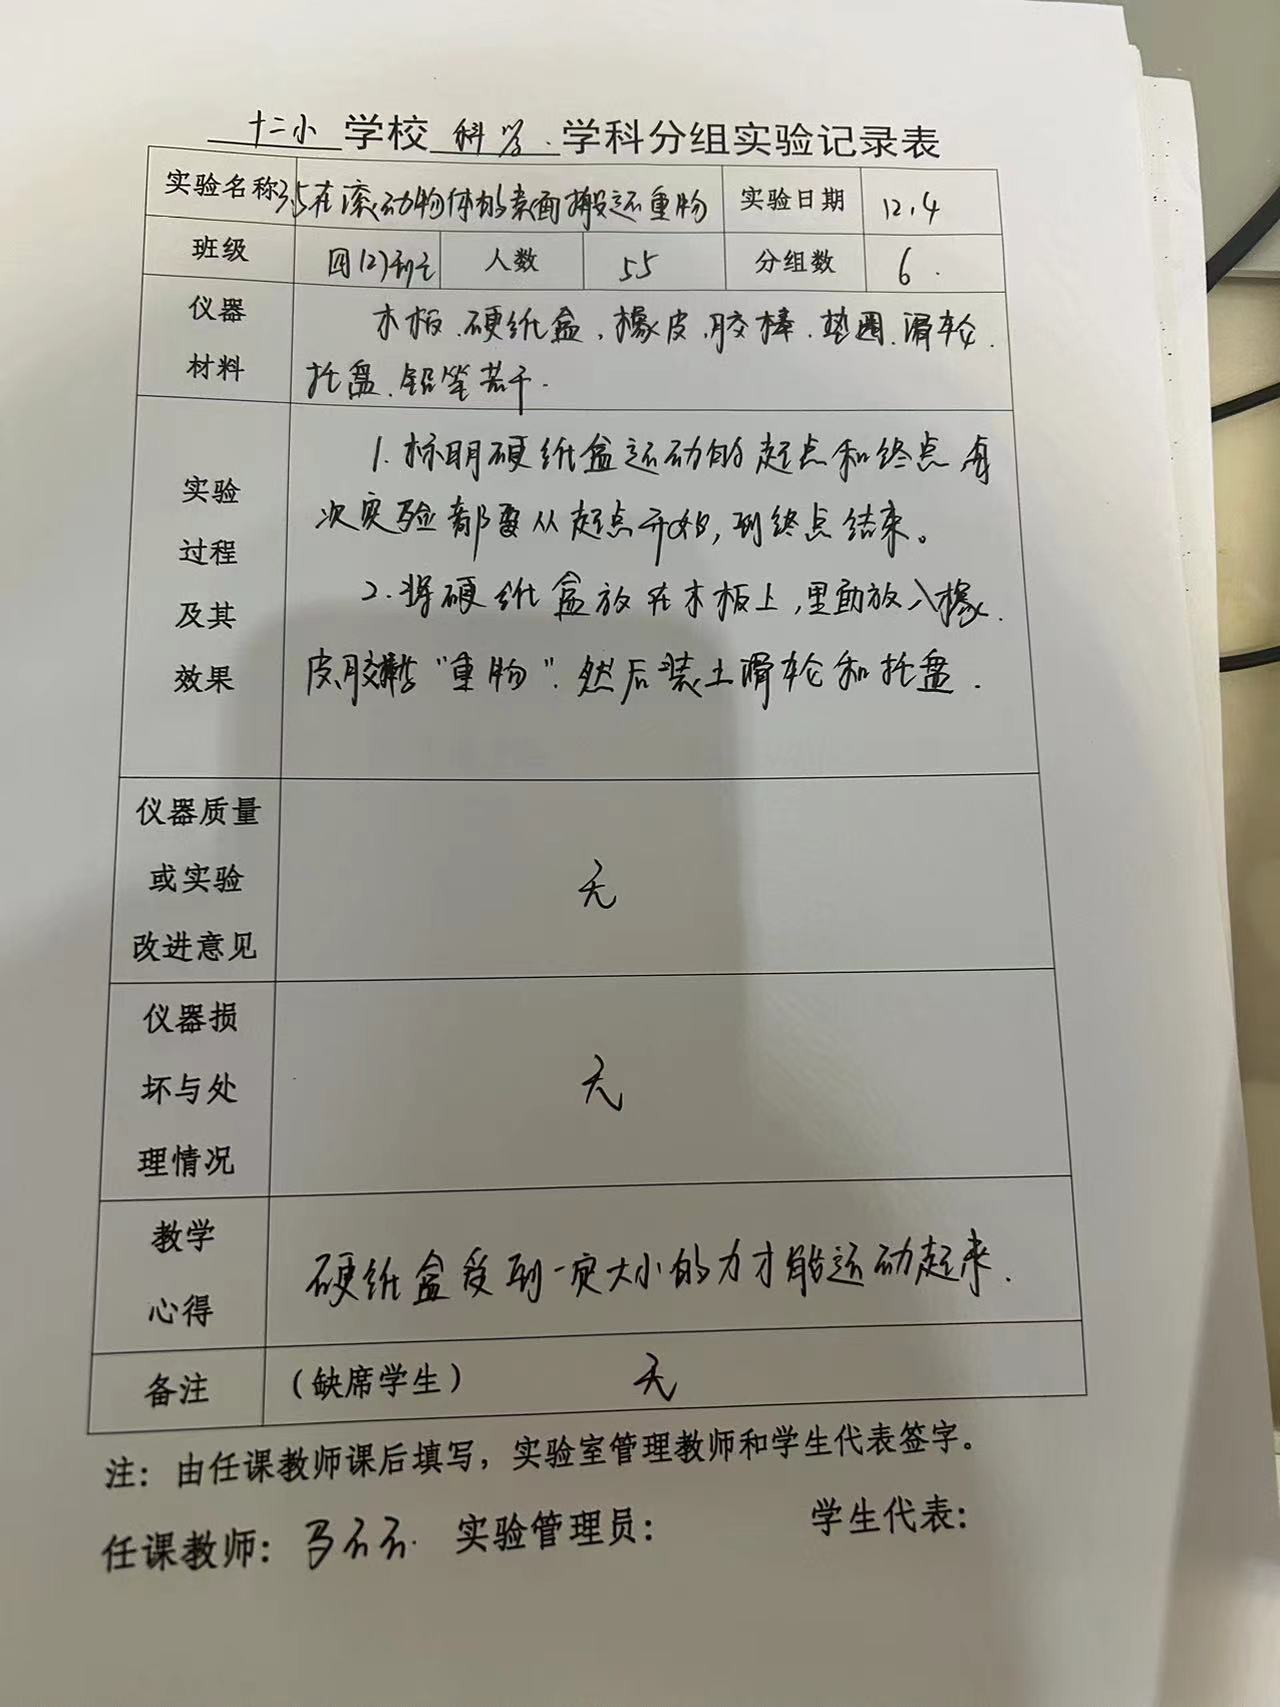 十二小学校科学学科分组实验记录表
实验名称 3.5在滚动物体的表面搬运重物 实验日期 12.4
班级 四(2)班 人数 55 分组数 6
仪器材料 木板、硬纸盒、橡皮、胶棒、垫圈、滑轮、
托盘、铅笔若干.
实验过程及其效果
1.标明硬纸盒运动的起点和终点,每
次实验都要从起点开始,到终点结束。
2.将硬纸盒放在木板上,里面放入橡
皮、胶棒等"重物".然后装上滑轮和托盘.
仪器质量或实验改进意见 无
仪器损坏与处理情况 无
教学心得 硬纸盒受到一定大小的力才能运动起来.
备注 (缺席学生) 无
注:由任课教师课后填写,实验室管理教师和学生代表签字。
任课教师: 实验管理员: 学生代表: